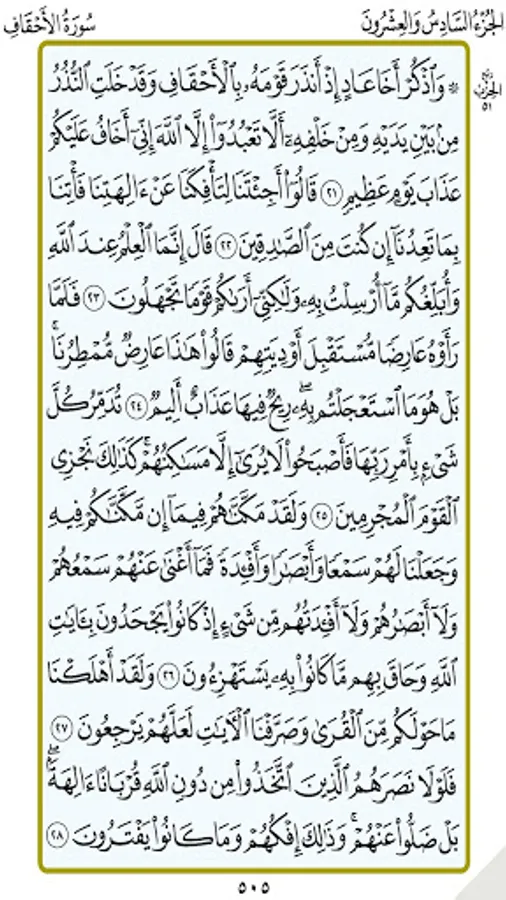 الجُزْءُ السَّادِسُ وَالعِشْرُونَ
سُورَةُ الأَحْقَافِ
ربع
الحزب
٥١
۞ وَٱذْكُرْ أَخَا عَادٍ إِذْ أَنذَرَ قَوْمَهُۥ بِٱلْأَحْقَافِ وَقَدْ خَلَتِ ٱلنُّذُرُ
مِنۢ بَيْنِ يَدَيْهِ وَمِنْ خَلْفِهِۦٓ أَلَّا تَعْبُدُوٓا۟ إِلَّا ٱللَّهَ إِنِّىٓ أَخَافُ عَلَيْكُمْ
عَذَابَ يَوْمٍ عَظِيمٍ ٢١ قَالُوٓا۟ أَجِئْتَنَا لِتَأْفِكَنَا عَنْ ءَالِهَتِنَا فَأْتِنَا
بِمَا تَعِدُنَآ إِن كُنتَ مِنَ ٱلصَّٰدِقِينَ ٢٢ قَالَ إِنَّمَا ٱلْعِلْمُ عِندَ ٱللَّهِ
وَأُبَلِّغُكُم مَّآ أُرْسِلْتُ بِهِۦ وَلَٰكِنِّىٓ أَرَىٰكُمْ قَوْمًا تَجْهَلُونَ ٢٣ فَلَمَّا
رَأَوْهُ عَارِضًا مُّسْتَقْبِلَ أَوْدِيَتِهِمْ قَالُوا۟ هَٰذَا عَارِضٌ مُّمْطِرُنَا ۚ
بَلْ هُوَ مَا ٱسْتَعْجَلْتُم بِهِۦ ۖ رِيحٌ فِيهَا عَذَابٌ أَلِيمٌ ٢٤ تُدَمِّرُ كُلَّ
شَىْءٍۭ بِأَمْرِ رَبِّهَا فَأَصْبَحُوا۟ لَا يُرَىٰٓ إِلَّا مَسَٰكِنُهُمْ ۚ كَذَٰلِكَ نَجْزِى
ٱلْقَوْمَ ٱلْمُجْرِمِينَ ٢٥ وَلَقَدْ مَكَّنَّٰهُمْ فِيمَآ إِن مَّكَّنَّٰكُمْ فِيهِ
وَجَعَلْنَا لَهُمْ سَمْعًا وَأَبْصَٰرًا وَأَفْـِٔدَةً فَمَآ أَغْنَىٰ عَنْهُمْ سَمْعُهُمْ
وَلَآ أَبْصَٰرُهُمْ وَلَآ أَفْـِٔدَتُهُم مِّن شَىْءٍ إِذْ كَانُوا۟ يَجْحَدُونَ بِـَٔايَٰتِ
ٱللَّهِ وَحَاقَ بِهِم مَّا كَانُوا۟ بِهِۦ يَسْتَهْزِءُونَ ٢٦ وَلَقَدْ أَهْلَكْنَا
مَا حَوْلَكُم مِّنَ ٱلْقُرَىٰ وَصَرَّفْنَا ٱلْءَايَٰتِ لَعَلَّهُمْ يَرْجِعُونَ ٢٧
فَلَوْلَا نَصَرَهُمُ ٱلَّذِينَ ٱتَّخَذُوا۟ مِن دُونِ ٱللَّهِ قُرْبَانًا ءَالِهَةًۢ ۖ
بَلْ ضَلُّوا۟ عَنْهُمْ ۚ وَذَٰلِكَ إِفْكُهُمْ وَمَا كَانُوا۟ يَفْتَرُونَ ٢٨
٥٠٥